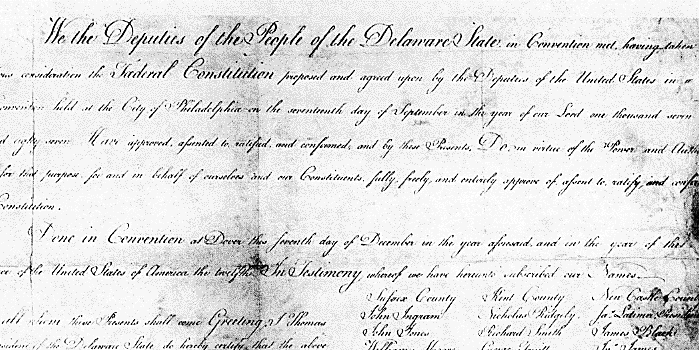 We the Deputies of the People of the Delaware State, in Convention met, having taken
consideration the Fœderal Constitution proposed and agreed upon by the Deputies of the United States in a
Convention held at the City of Philadelphia on the seventeenth day of September in the year of our Lord one thousand seven
eighty seven Have approved, assented to, ratified, and confirmed, and by these Presents, Do, in virtue of the Power and
for that purpose, for and in behalf of ourselves and our Constituents, fully, freely, and entirely approve of, assent to, ratify, and
Constitution.
Done in Convention at Dover this seventh day of December in the year aforesaid, and in the year of the
of the United States of America the twelfth. In Testimony whereof we have hereunto subscribed our Names.
Sussex County Kent County New Castle County
all whom these Presents shall come Greeting, I Thomas John Ingram Nicholas Ridgely Jas Latimer, President
John Jones Richard Smith James Black
of the Delaware State do hereby certify, that the above